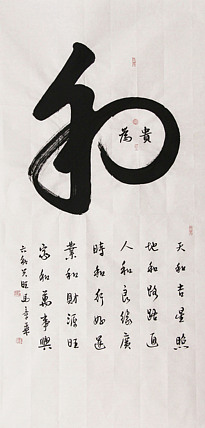 和
為貴
天和吉星照
地和路路通
人和良緣廣
時和行好運
業和財源旺
家和萬事興